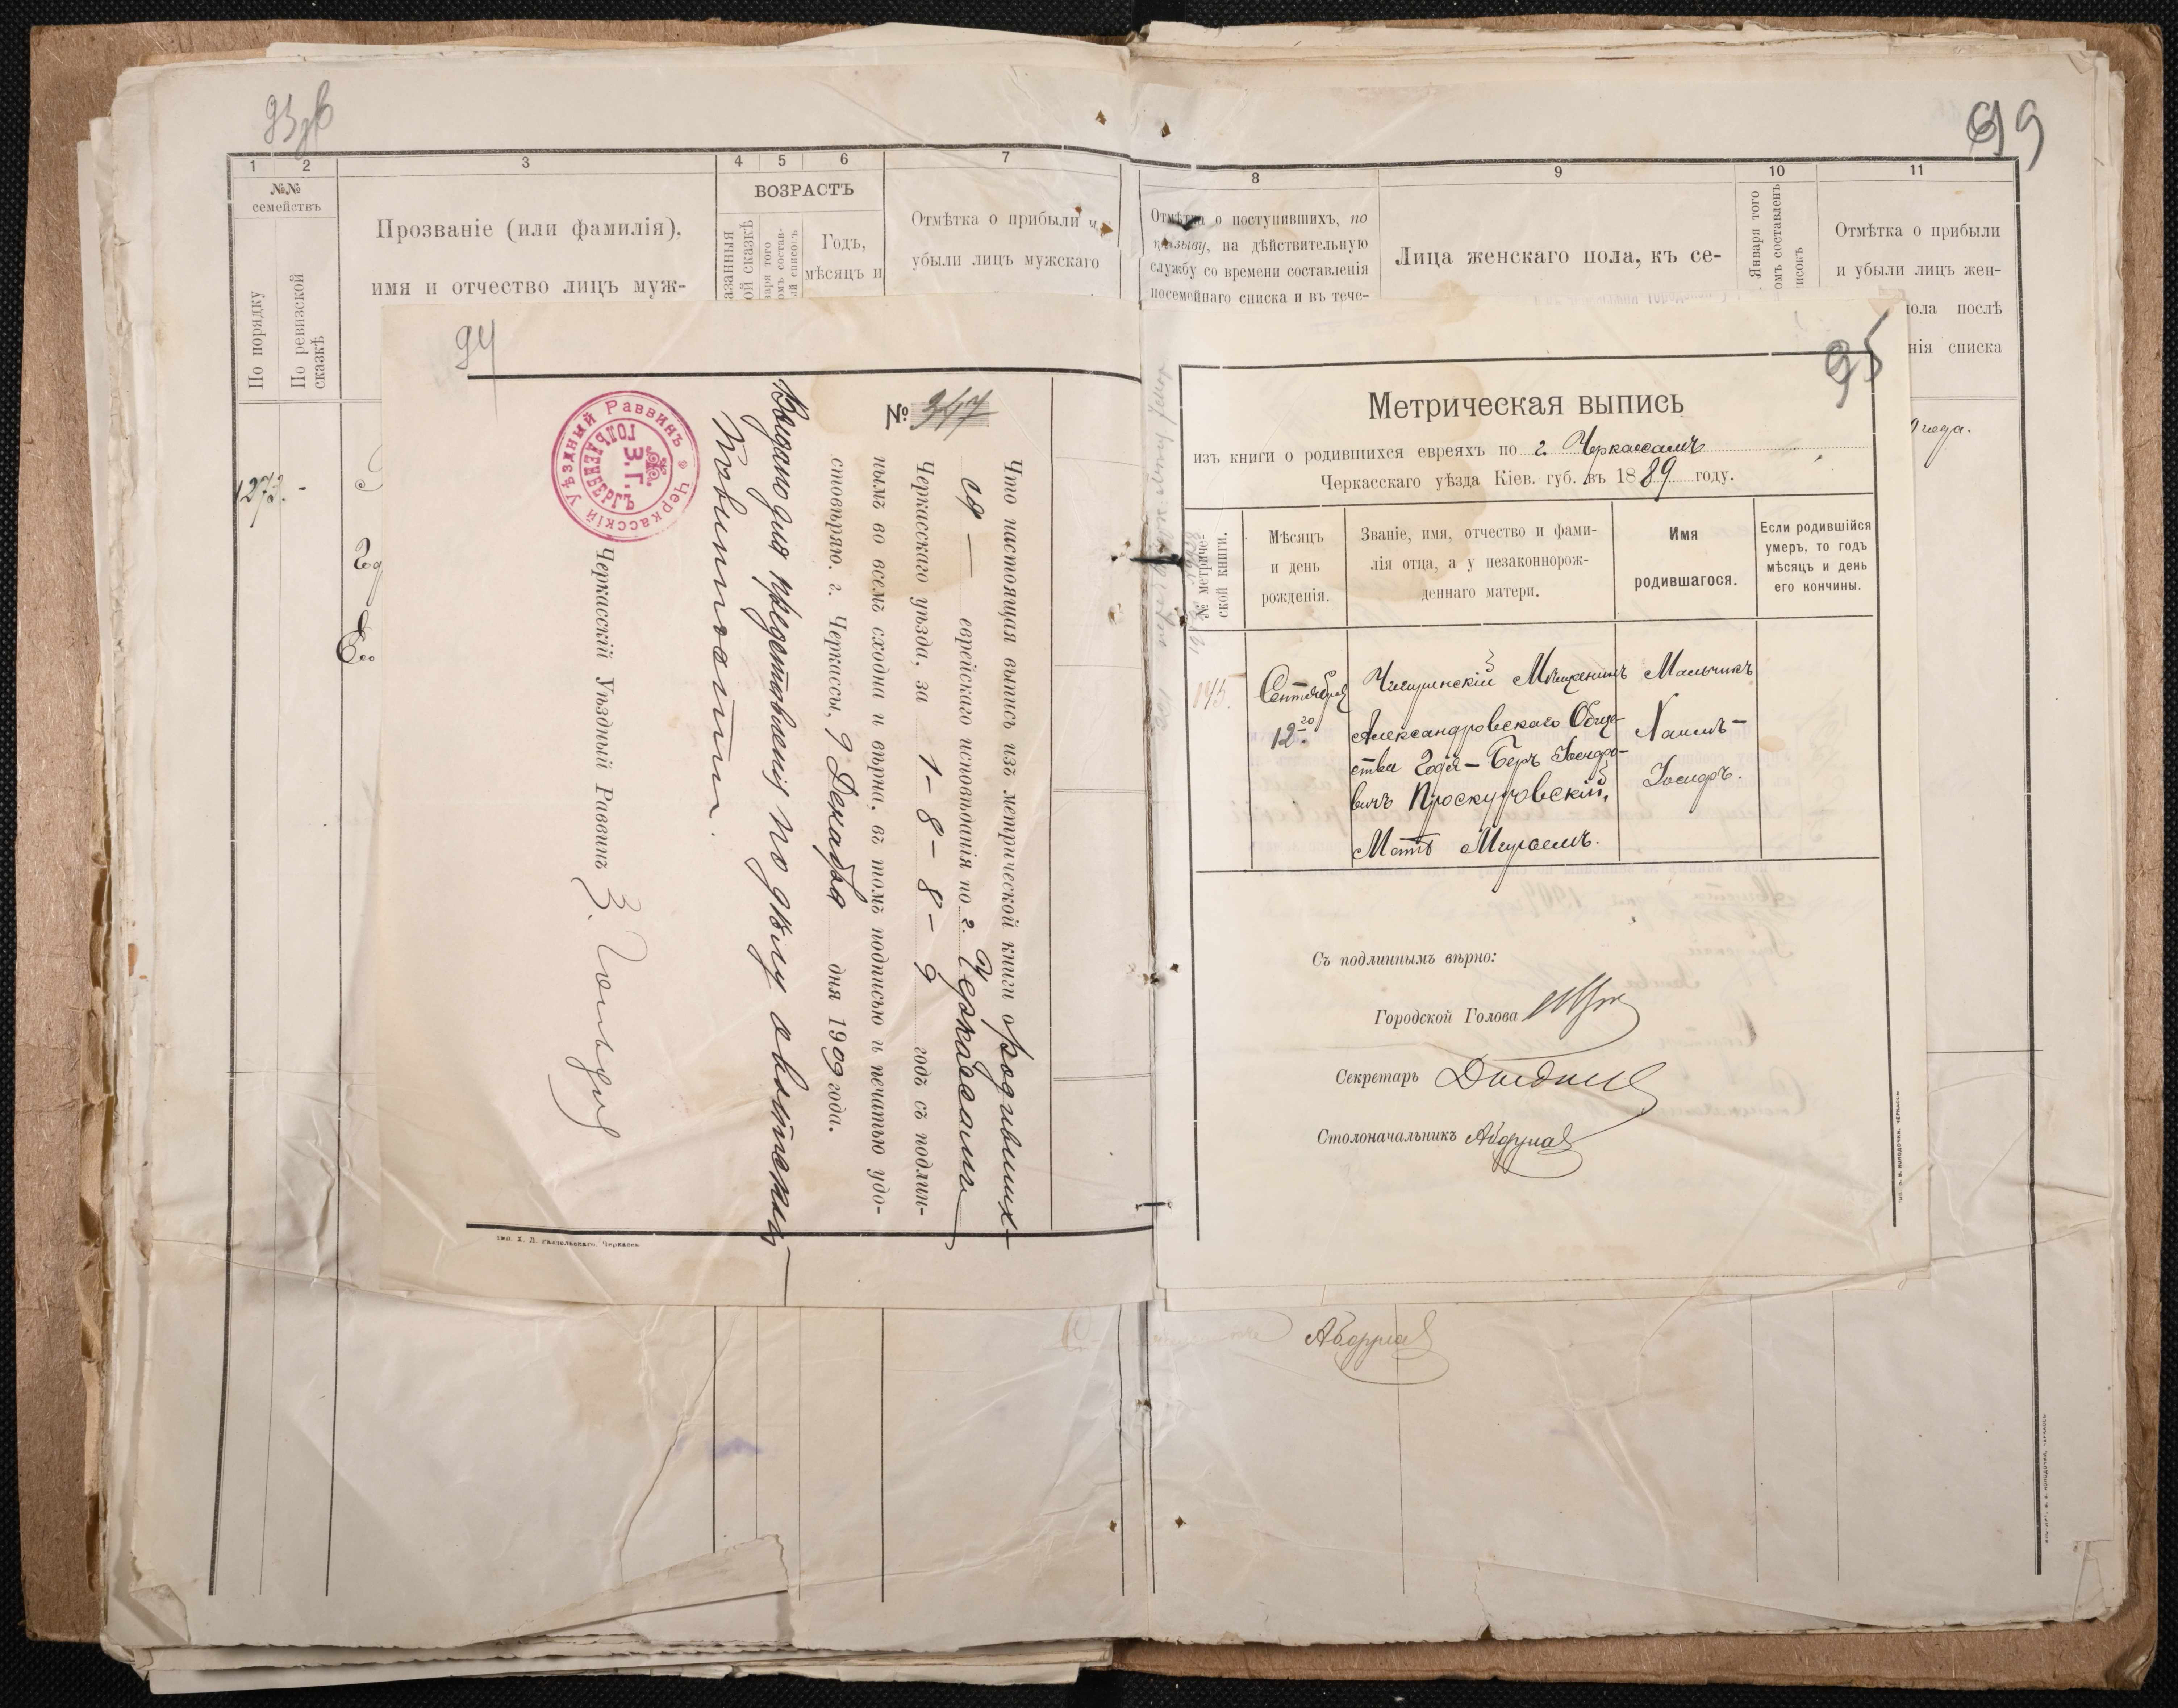 1
2
3
4
5
6
7
№№
семействъ
По порядку
По ревизской
сказкѣ
Прозваніе (или фамилія),
имя и отчество лицъ муж-
ВОЗРАСТЪ
Годъ,
мѣсяцъ и
Отмѣтка о прибыли и
убыли лицъ мужскаго
1273. -
8
9
10
11
Отмѣтка о поступившихъ, по
призыву, на дѣйствительную
службу со времени составленія
посемейнаго списка и въ тече-
Лица женскаго пола, къ се-
Января того
Отмѣтка о прибыли
и убыли лицъ жен-
пола послѣ
нія списка
года.
99
94
№ 347
Что настоящая выпись изъ метрической книги о родивших-
ся — еврейскаго исповѣданія по г. Черкассамъ
Черкасскаго уѣзда, за 1-8-8-9 годъ съ подлин-
нымъ во всемъ сходна и вѣрна, въ томъ подписью и печатью удо-
стовѣряю. г. Черкассы, 9 Декабря дня 1909 года.
Выдано для представленія по дѣлу о воинской
повинности.
Черкасскій Уѣздный Раввинъ З.
Черкасскій Уѣздный Раввинъ
З.Г.
ГОЛЬДЕНБЕРГЪ
95
Метрическая выпись
изъ книги о родившихся евреяхъ по г. Черкассамъ
Черкасскаго уѣзда Кіев. губ. въ 1889 году.
№ метриче-
ской книги.
Мѣсяцъ
и день
рожденія.
Званіе, имя, отчество и фами-
лія отца, а у незаконнорож-
деннаго матери.
Имя
родившагося.
Если родившійся
умеръ, то годъ
мѣсяцъ и день
его кончины.
145.
Сентября
12го
Чигиринскій Мѣщанинъ
Александровскаго Обще-
ства Годя-Беръ Іосифо-
вичъ Проскуровскій,
Мать Мирьемъ.
Мальчикъ
Хаимъ-
Іосифъ.
Съ подлиннымъ вѣрно:
Городской Голова
Секретарь
Столоначальникъ